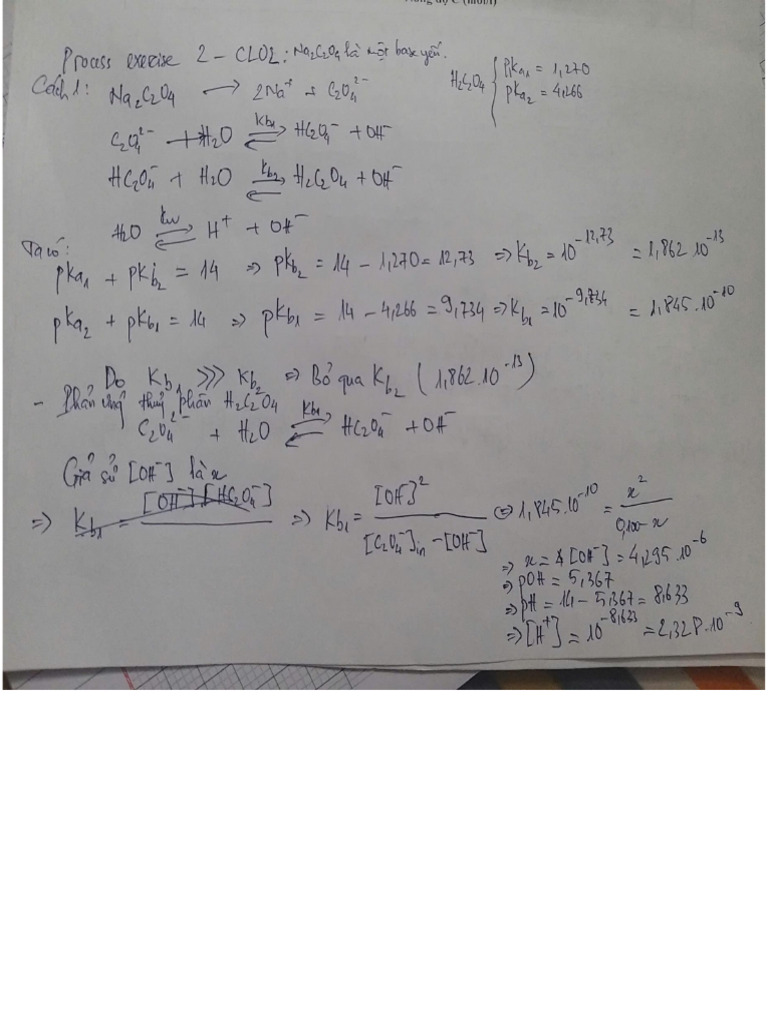 Nồng độ C (mol/l)
Process exercise 2 - CLO2: Na2C2O4 là một base yếu.
H2C2O4 { pKa1 = 1,270
pKa2 = 4,266
Cách 1: Na2C2O4 → 2Na+ + C2O4^2-
C2O4^2- + H2O ⇌ (Kb1) HC2O4^- + OH^-
HC2O4^- + H2O ⇌ (Kb2) H2C2O4 + OH^-
H2O ⇌ (Kw) H+ + OH^-
Ta có:
pKa1 + pKb2 = 14 ⇒ pKb2 = 14 - 1,270 = 12,73 ⇒ Kb2 = 10^-12,73 = 1,862.10^-13
pKa2 + pKb1 = 14 ⇒ pKb1 = 14 - 4,266 = 9,734 ⇒ Kb1 = 10^-9,734 = 1,845.10^-10
Do Kb1 >>> Kb2 ⇒ Bỏ qua Kb2 (1,862.10^-13)
- Phản ứng thuỷ phân H2C2O4
C2O4^2- + H2O ⇌ (Kb1) HC2O4^- + OH^-
Giả sử [OH^-] là x
⇒ Kb1 = [OH^-][HC2O4^-] ⇒ Kb1 = [OH^-]^2 / [C2O4^-]in - [OH^-] ⇔ 1,845.10^-10 = x^2 / 0,100 - x
⇒ x = [OH^-] = 4,295.10^-6
⇒ pOH = 5,367
⇒ pH = 14 - 5,367 = 8,633
⇒ [H+] = 10^-8,633 = 2,328.10^-9